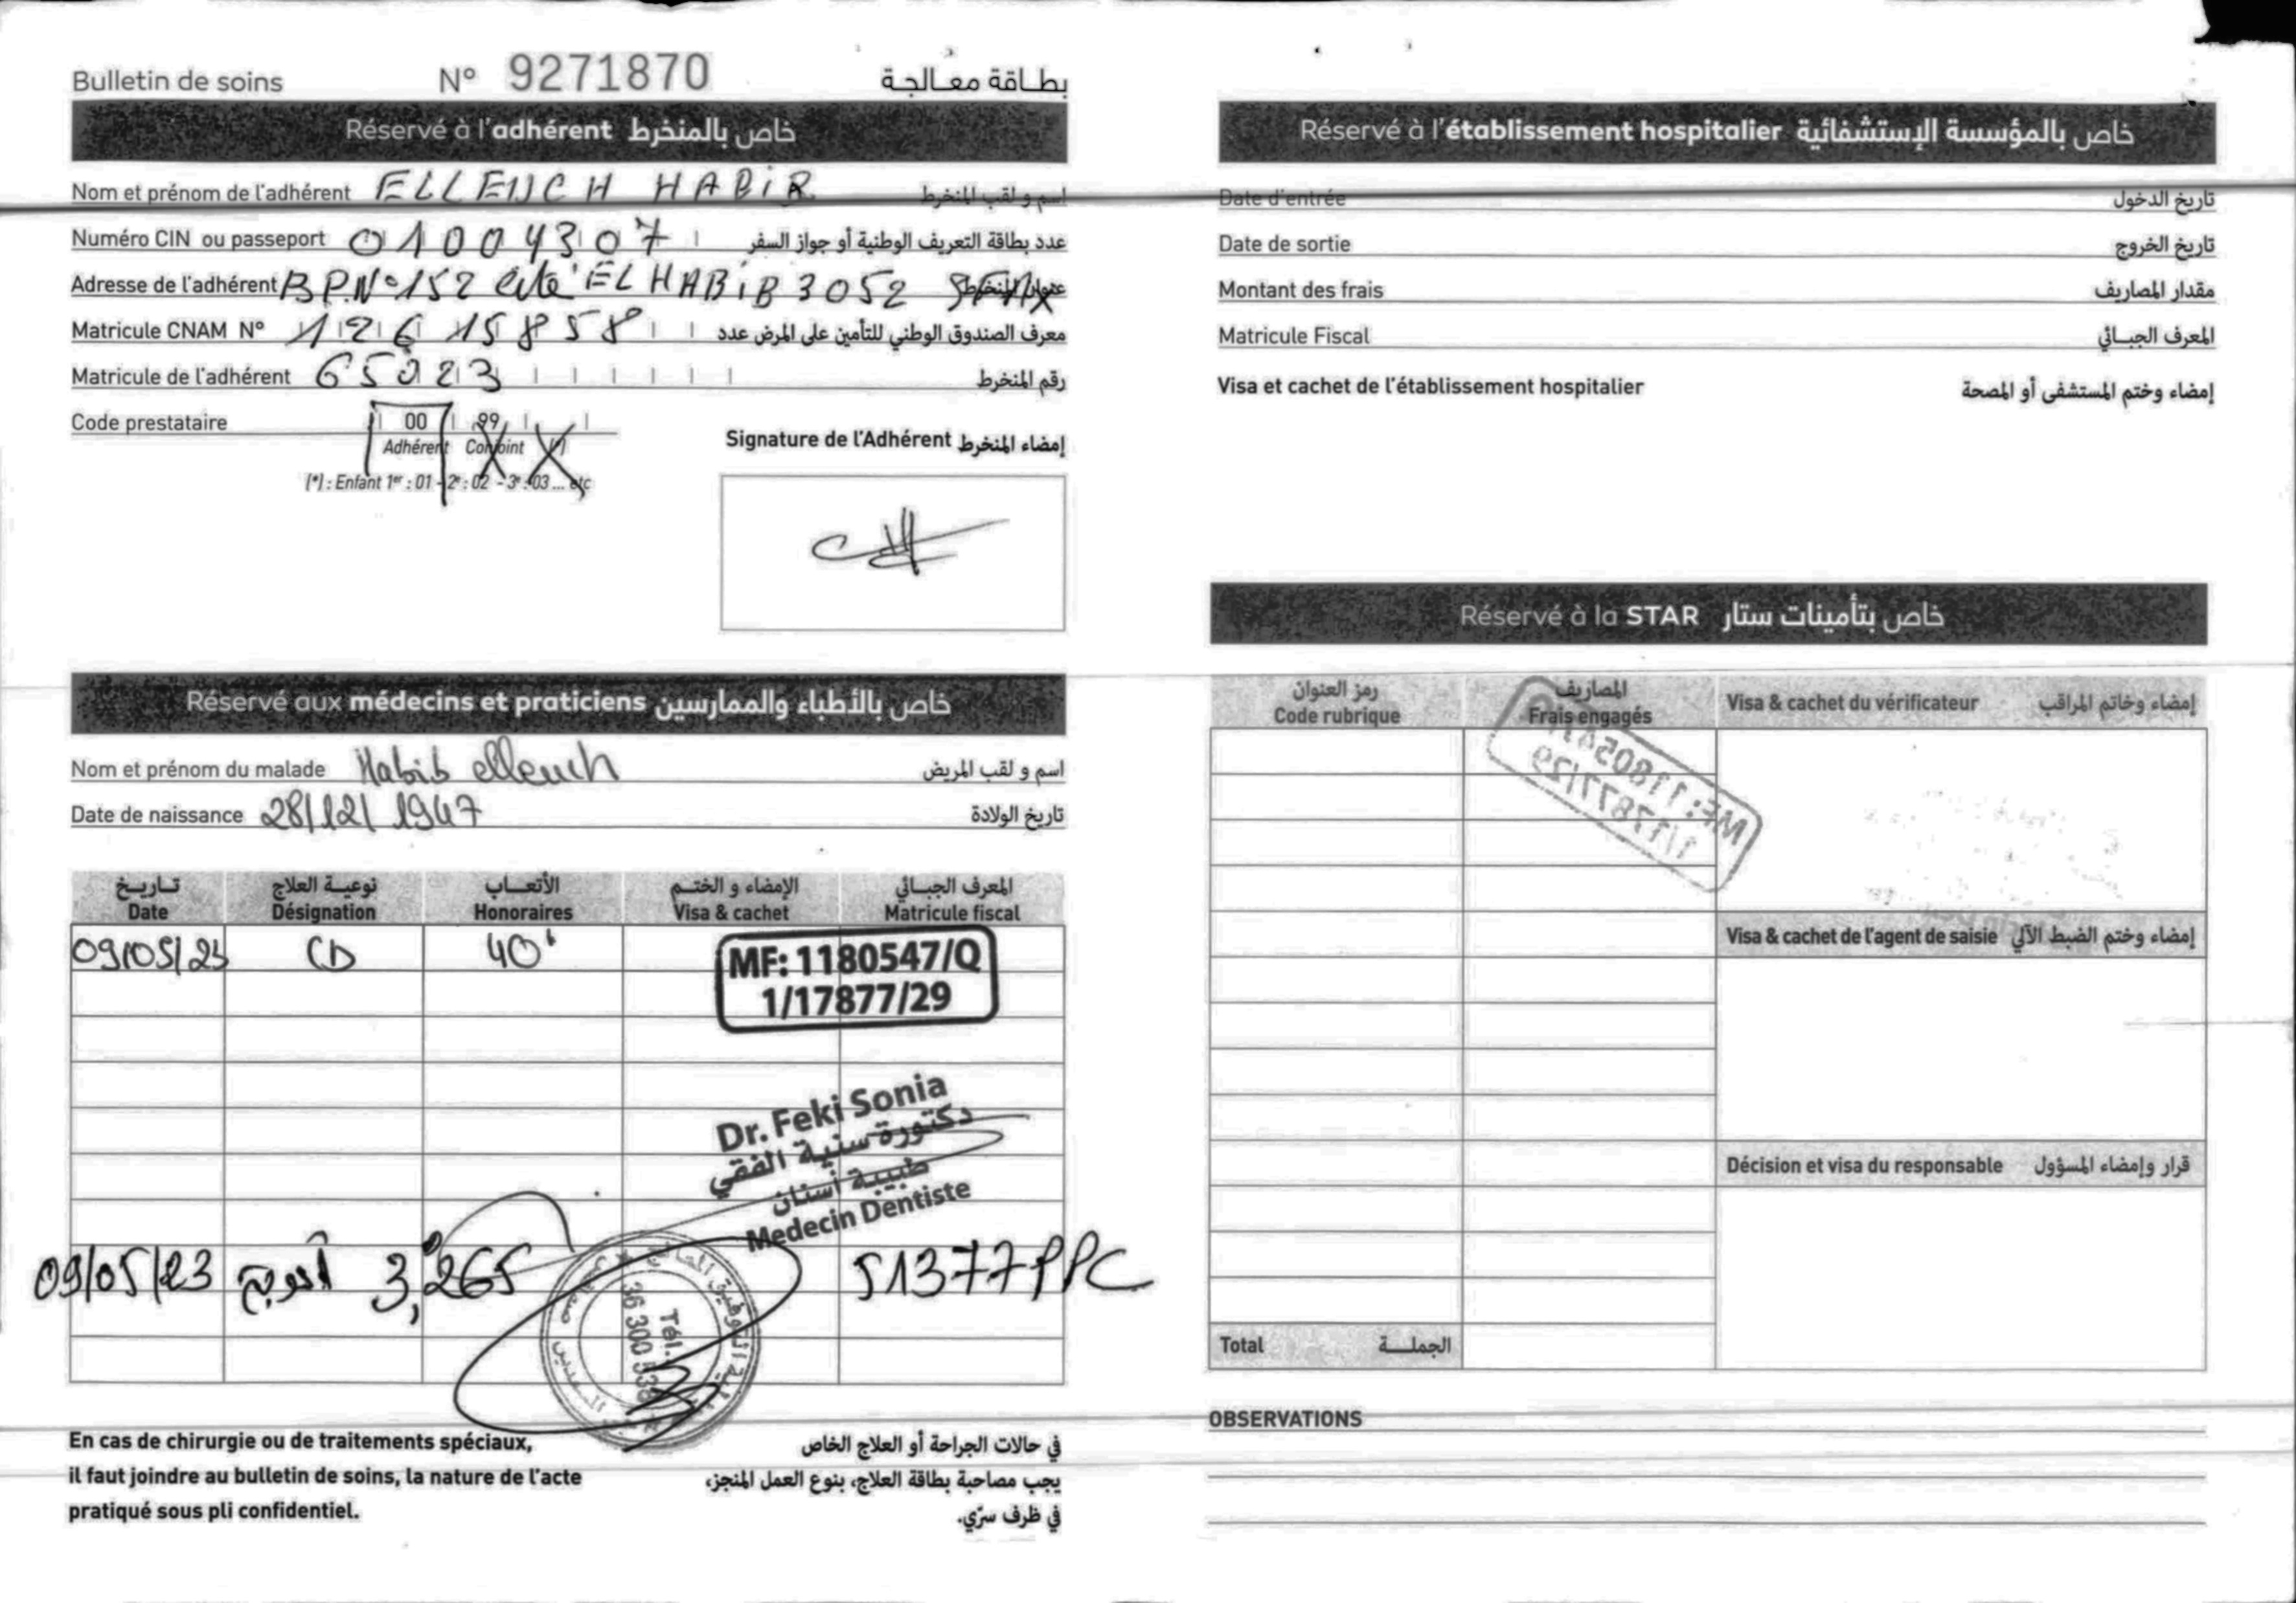 Bulletin de soins N° 9271870 بطاقة معالجة
Réservé à l'adhérent خاص بالمنخرط
Nom et prénom de l'adhérent ELLEUCH HABIB اسم و لقب المنخرط
Numéro CIN ou passeport 01004307 عدد بطاقة التعريف الوطنية أو جواز السفر
Adresse de l'adhérent B.P.N°152 cité EL HABIB 3052 SFAX عنوان المنخرط
Matricule CNAM N° 12615858 معرف الصندوق الوطني للتأمين على المرض عدد
Matricule de l'adhérent 65023 رقم المنخرط
Code prestataire 00 99
Adhérent Conjoint (*)
(*) : Enfant 1er : 01 - 2e : 02 - 3e : 03 ... etc
Signature de l'Adhérent إمضاء المنخرط
Réservé aux médecins et praticiens خاص بالأطباء والممارسين
Nom et prénom du malade Habib elleuch اسم و لقب المريض
Date de naissance 28/12/1947 تاريخ الولادة
تـاريـخ نوعيـة العلاج الأتعـاب الإمضاء و الختـم المعرف الجبـائي
Date Désignation Honoraires Visa & cachet Matricule fiscal
09/05/23 CD 40
MF: 1180547/Q
1/17877/29
Dr. Feki Sonia
دكتورة سنية الفقي
طبيبة أسنان
Medecin Dentiste
09/05/23 3,265 51377PPC
Tél.
36 300 538
En cas de chirurgie ou de traitements spéciaux,
il faut joindre au bulletin de soins, la nature de l'acte
pratiqué sous pli confidentiel.
في حالات الجراحة أو العلاج الخاص
يجب مصاحبة بطاقة العلاج، بنوع العمل المنجز،
في ظرف سرّي.
Réservé à l'établissement hospitalier خاص بالمؤسسة الإستشفائية
Date d'entrée تاريخ الدخول
Date de sortie تاريخ الخروج
Montant des frais مقدار المصاريف
Matricule Fiscal المعرف الجبـائي
Visa et cachet de l'établissement hospitalier إمضاء وختم المستشفى أو المصحة
Réservé à la STAR خاص بتأمينات ستار
رمز العنوان المصاريف
Code rubrique Frais engagés Visa & cachet du vérificateur إمضاء وخاتم المراقب
MF: 1180547
1/17877/29
Visa & cachet de l'agent de saisie إمضاء وختم الضبط الآلي
Décision et visa du responsable قرار وإمضاء المسؤول
Total الجملـــة
OBSERVATIONS